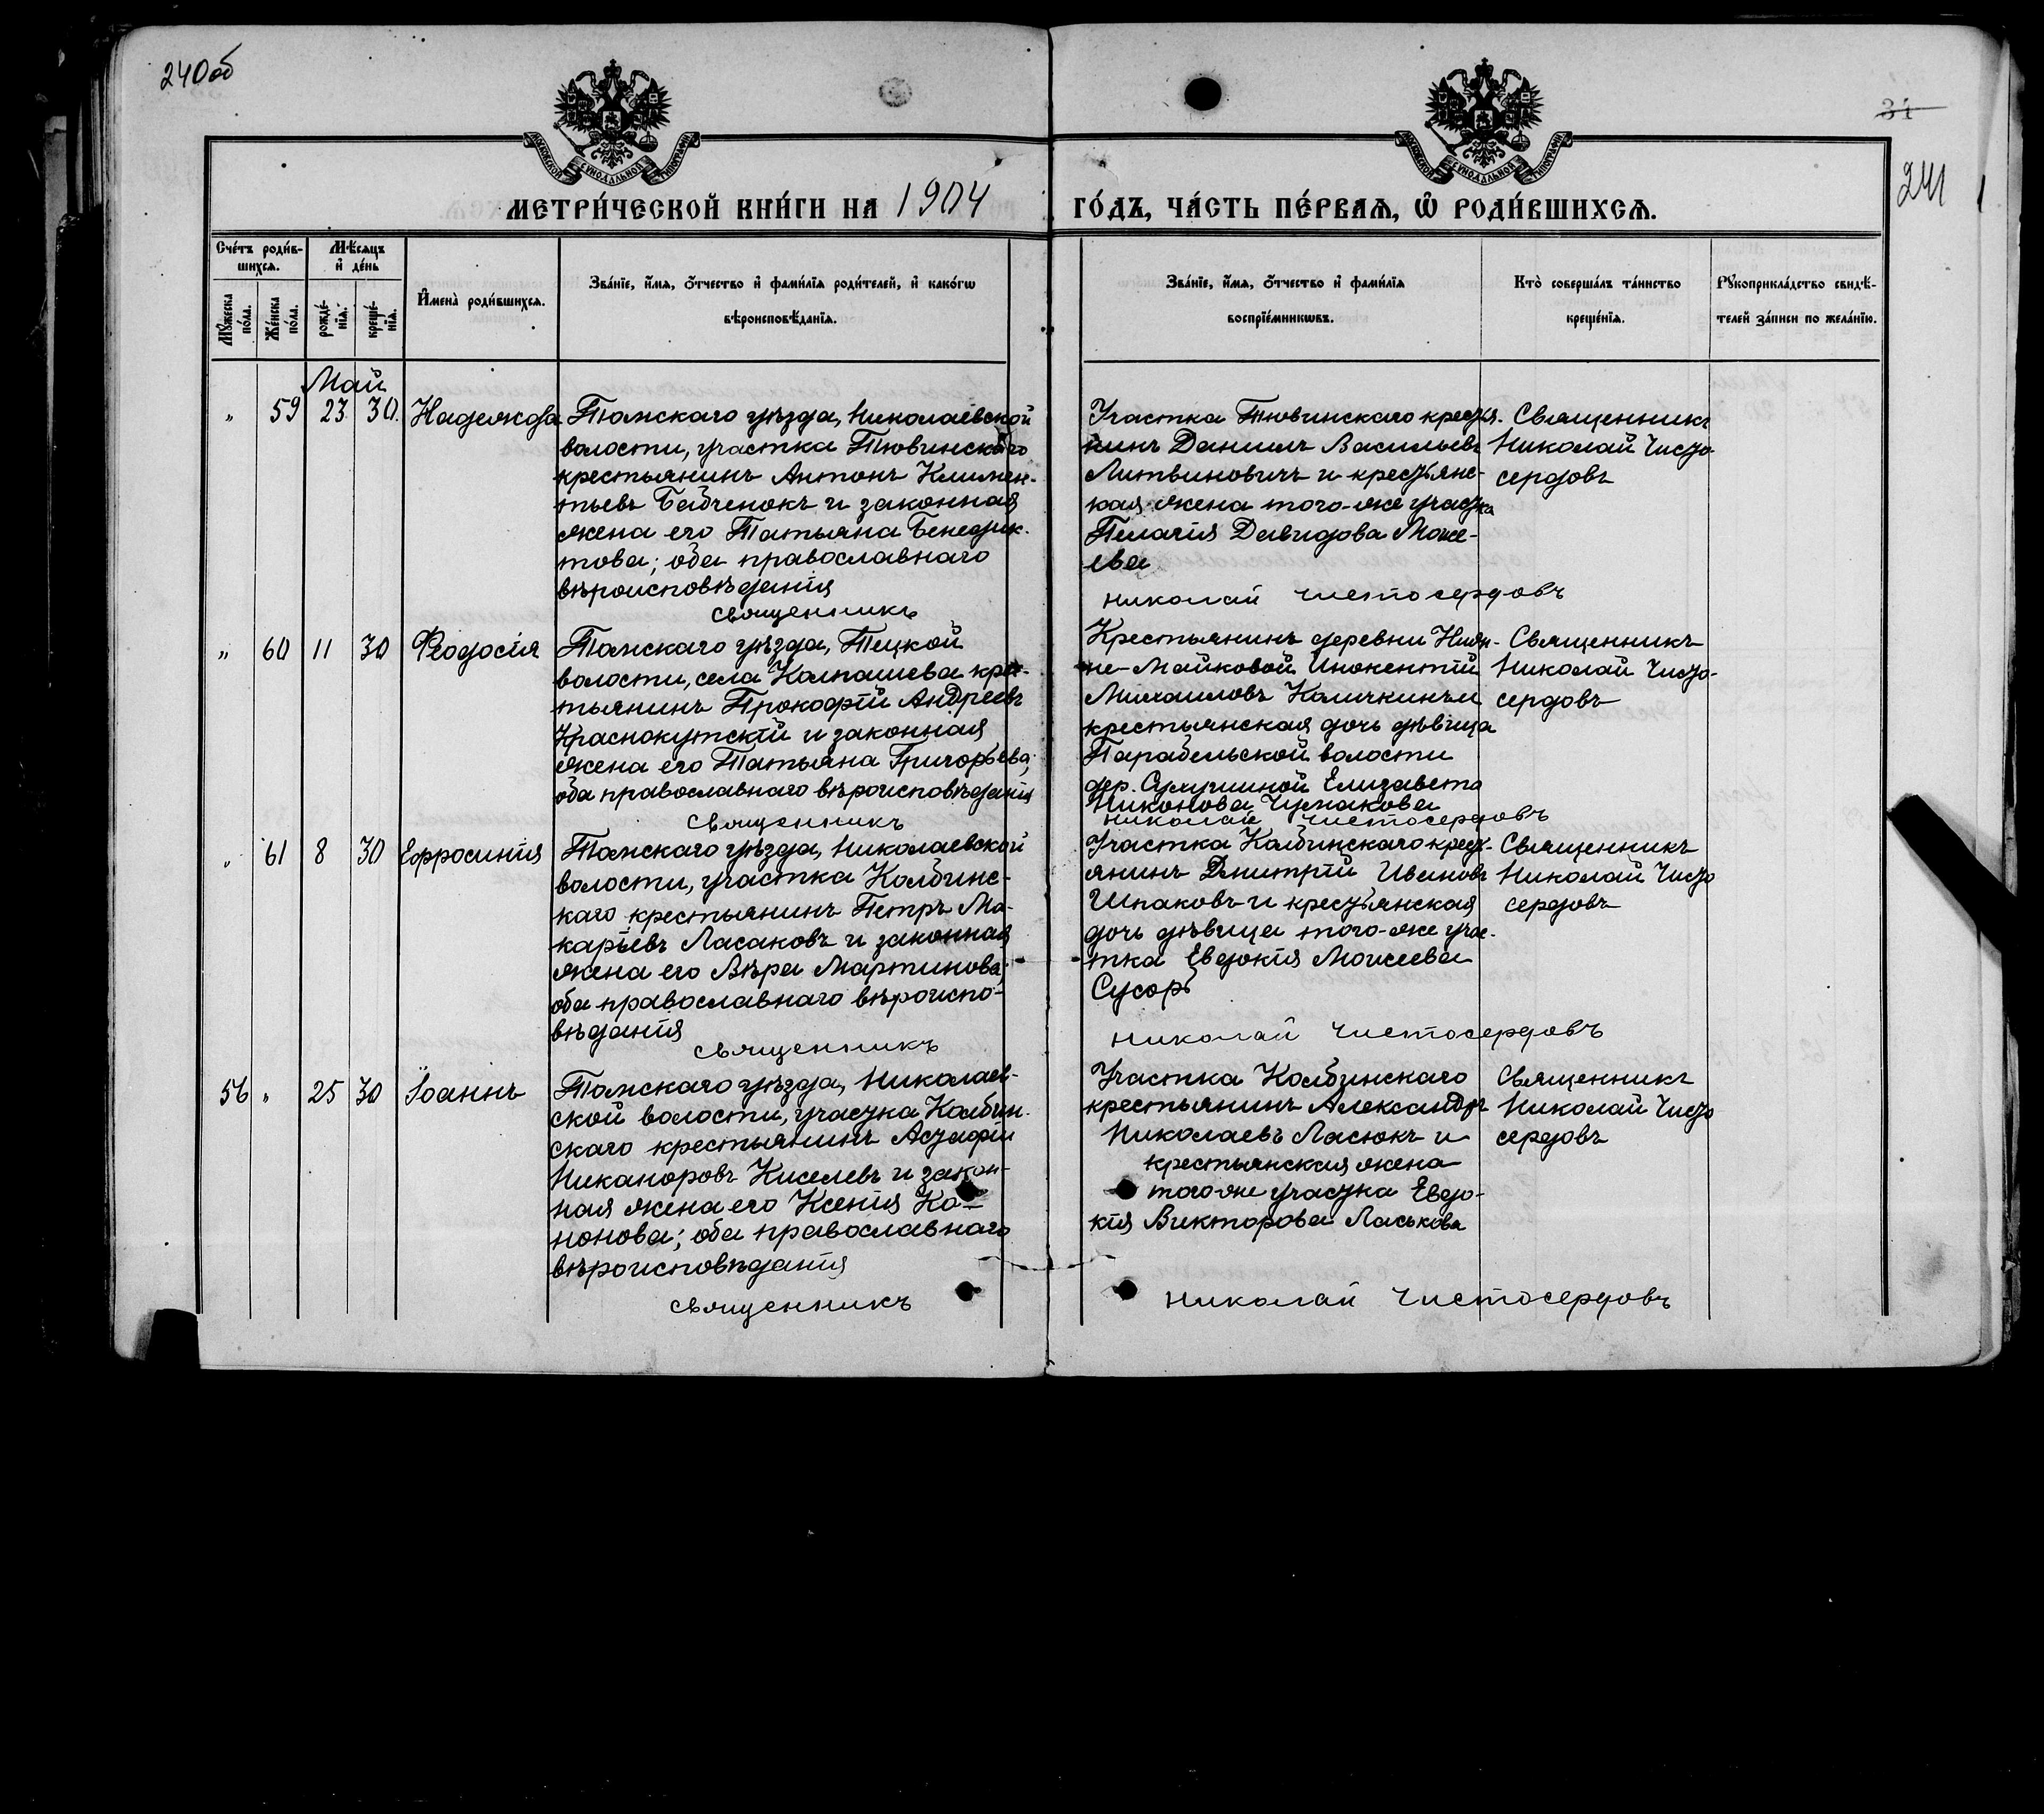 240об
34
241
МОСКОВСКОЙ СУНОДАЛЬНОЙ ТИПОГРАФІИ
МОСКОВСКОЙ СУНОДАЛЬНОЙ ТИПОГРАФІИ
МЕТРИ́ЧЕСКОЙ КНИ́ГИ НА 1904
ГО́ДЪ, ЧА́СТЬ ПЕ́РВАѦ, Ѡ҆ РОДИ́ВШИХСѦ.
Сче́тъ роди́в-
шихсѧ.
Мѣ́сѧцъ
и҆ де́нь
Мꙋ́жеска
по́ла.
Же́нска
по́ла.
рожде́-
нїѧ.
креще́-
нїѧ.
И҆мена̀ роди́вшихсѧ.
Зва́нїе, и҆́мѧ, ѻ҆́тчество и҆ фами́лїѧ роди́телей, и҆ како́гѡ
вѣроисповѣ́данїѧ.
Зва́нїе, и҆́мѧ, ѻ҆́тчество и҆ фами́лїѧ
воспрїе́мникѡвъ.
Кто̀ соверша́лъ та́инство
креще́нїѧ.
Рꙋкоприкла́дство свидѣ́-
телей за́писи по жела́нїю.
Май
" 59 23 30. Надежда
Томскаго уѣзда, Николаевской
волости, участка Тювинскаго
крестьянинъ Антонъ Климен-
тьевъ Бабченокъ и законная
жена его Татьяна Бенедик-
това; оба православнаго
вѣроисповѣданія
Участка Тювинскаго крестья-
нинъ Даниилъ Васильевъ
Литвиновичъ и крестьянс-
кая жена того-же участка
Пелагія Давидова Моисе-
ева
Священникъ
Николай Чисто-
сердовъ
священникъ Николай Чистосердовъ
" 60 11 30 Ѳеодосія
Томскаго уѣзда, Тецкой
волости, села Колпашева крес-
тьянинъ Прокофій Андреевъ
Краснокутскій и законная
жена его Татьяна Григорьева;
оба православнаго вѣроисповѣданія
Крестьянинъ деревни Ниж-
не-Майковой Инокентій
Михаиловъ Каличкинъ и
крестьянская дочь дѣвица
Парабельской волости
дер. Елизавета
Никонова Чумакова
Священникъ
Николай Чисто-
сердовъ
священникъ Николай Чистосердовъ
" 61 8 30 Ефросинія
Томскаго уѣзда, Николаевской
волости, участка Колбинс-
каго крестьянинъ Петръ Ма-
карьевъ Ласаковъ и законная
жена его Вѣра Мартинова;
оба православнаго вѣроиспо-
вѣданія
Участка Колбинскаго крест-
янинъ Дмитрій Ивановъ
Шпаковъ и крестьянская
дочь дѣвица того-же учас-
тка Евдокія Моисеева
Сусорь
Священникъ
Николай Чисто
сердовъ
священникъ Николай Чистосердовъ
56 " 25 30 Іоаннъ
Томскаго уѣзда, Николаев-
ской волости, участка Колбин-
скаго крестьянинъ Астафій
Никаноровъ Киселевъ и закон-
ная жена его Ксенія Ко-
нонова; оба православнаго
вѣроисповѣданія
Участка Колбинскаго
крестьянинъ Александръ
Николаевъ Ласюкъ и
крестьянская жена
того-же участка Евдо-
кія Викторова Ласькова
Священникъ
Николай Чисто
сердовъ
священникъ Николай Чистосердовъ